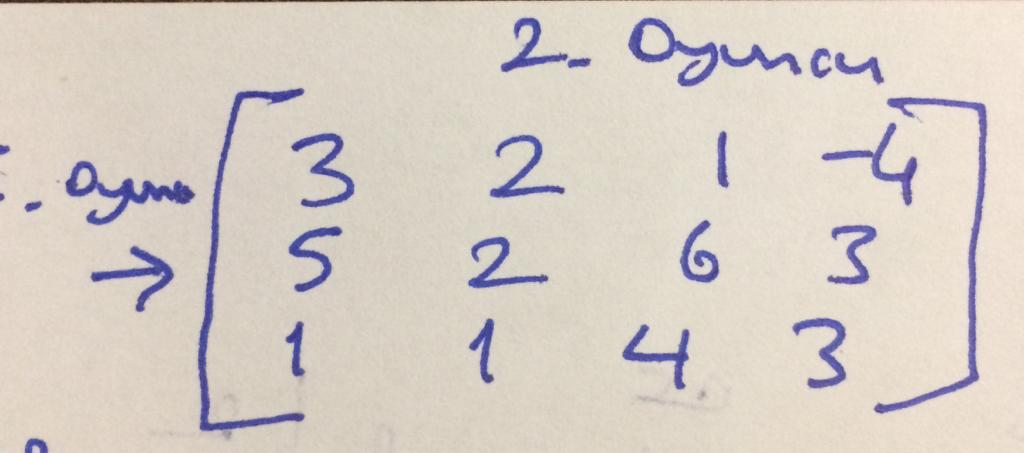 2. Oyuncu
. Oyuncu
3 2 1 -4
→ 5 2 6 3
1 1 4 3